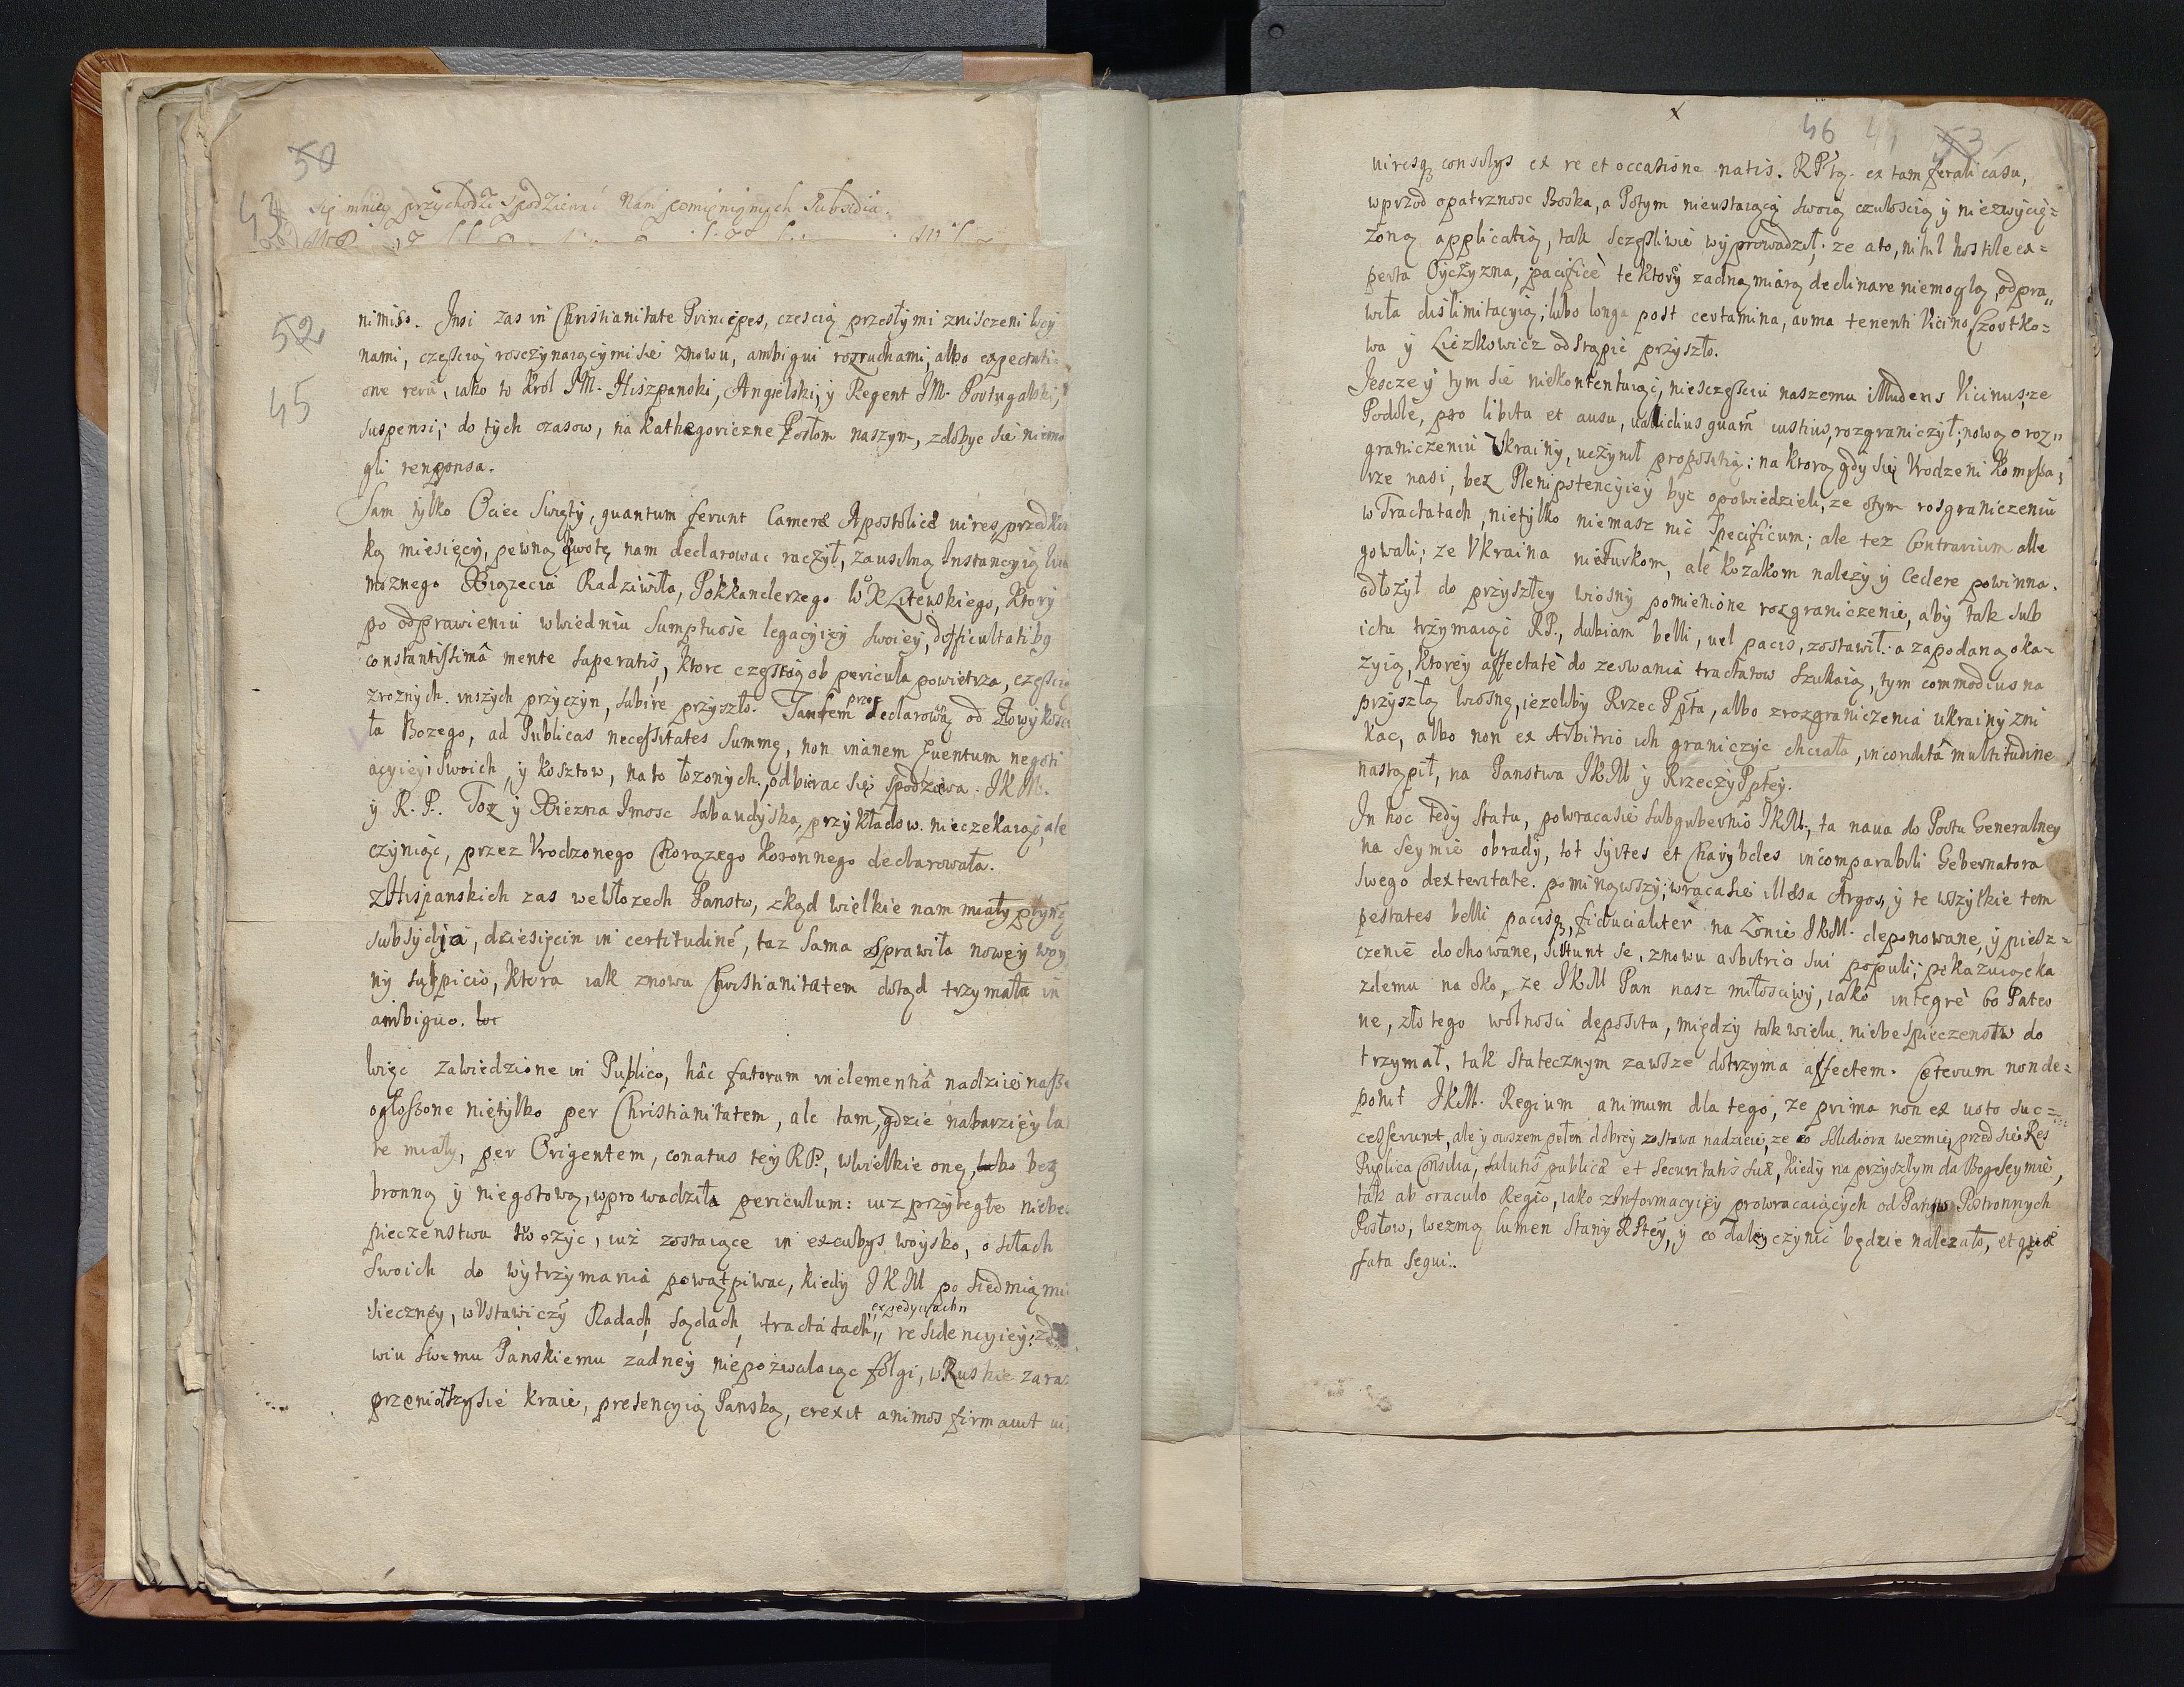 50
43
się mniey przychodzi spodziewać Nam pomięnięnych Subsidia.
52
45
nimiss. Insi zas in Christianitate Principes, czescią przeszłymi zniszczeni woy
nami, częscią rosczynaiącymi sie znowu, ambigui rozruchami, albo expectati
one rerū, iako to Krol JM. Hiszpanski, Angielski, y Regent JM. Portugalski,
suspensi; do tych czasow, na kathegoriczne Posłom naszym, zdobyc sie niemo
gli responsa.
Sam tylko Ociec Swięty, quantum ferunt Cameræ Apostolicæ vires, przed kil
ką miesięcy, pewną kwotę nam declarowac raczył, za usilną Instancyią
moznego Xiązecia Radziwiła, Pokkanclerzego W X Litewskiego, ktory
po odprawieniu w Wiedniu sumptuose legacyiey swoiey, difficultatibq
constantissimâ mente superatis, ktore częscią ob pericula powietrza, częscią
z roznych inszych przyczyn, subire przyszło. Tandem przez declarowaną od
ła Bozego, ad Publicas necessitates Summę, non inanem Euentum negoti
acyiey swoich, y kosztow, na to łozonych, odbierac się spodziewa. JKM.
y R. P. Toz y Xiezna Imosc Sabaudyska, przykładow nieczekaiąc, ale
czyniąc, przez Vrodzonego Chorązego Koronnego declarowała.
Z Hispanskich zas we Włozech Panstw, zkąd wielkie nam miały płyną
subsydia, dziesięcin in certitudinē, taz sama sprawiła nowey woy
ny suspicio, ktora iak znowu Christianitatem dotąd trzymała in
ambiguo.
Więc zawiedzione in Publico, hâc fatorum inclementiâ nadzieie nasze
ogłoszone nietylko per Christianitatem, ale tam, gdzie nabarziey la
te miały, per Orientem, conatus tey RP., w wielkie onę, bez
bronną y niegotową, wprowadziła periculum: iuz przyległe niebe
pieczenstwu trwozyc, iuz zostaiące in excubys woysko, o siłach
swoich do wytrzymania powątpiwac, kiedy JKM po siedmią mi
sieczney, w Vstawiczy Radach, Sądach, tractatach, expedycyach residencyiey; zdro
wiu swemu Panskiemu zadney niepozwalaiąc folgi, w Ruskie zaraz
przeniosszy sie kraie, presencyią Panską, erexit animos firmauit
46
53
uiresq consilys ex re et occasione natis. RPtą. ex tam ferali casu,
wprzod opatrznosc Boska, a Potym nieustaiącą swoią czułoscią y niezwycię=
zoną applicatią, tak sczęsliwie wyprowadził; ze ato, nihil hostile ex=
perta Oyczyzna, pacificè te ktory zadną miarą declinare niemogła, odpra„
wiła dislimitacyią; lubo longa post certamina, arma tenenti Vicino Czortko=
wa y Liczkowicz odstąpic przyszło.
Jescze y tym sie niekontentuiąc, niesczęsciu naszemu illudens Vicinus, ze
Podole, pro libitu et ausu, ualidius quam iustius, rozgraniczył; nową o roz„
graniczeniu Vkrainy, uczynił propositią: na ktorą gdy się Vrodzeni Komissa;
rze nasi, bez Plenipotencyiey byc opowiedzieli, ze otym rosgraniczeniu
w Tractatach, nietylko niemasz nic Specificum; ale tez Contrarium alle
gowali; ze Vkraina nieTurkom, ale kozakom nalezy y cedere powinna.
odłozył do przyszłey wiosny pomienione rozgraniczenie, aby tak sub
ictu trzymaiąc RP., dubiam belli, uel pacis, zostawił: a za podaną oka=
zyią, ktorey affectatè do zerwania tractatow szukaią, tym commodius na
przyszłą wiosnę, iezeliby Rzecz Ppta, albo z rozgraniczenia ukrainy zni
kac, albo non ex Arbitrio ich graniczyc chciała, inconditâ multitudine
nastąpił, na Panstwa JKM y Rzeczy Pptey.
In hoc tedy Statu, powraca sie sub gubernio JKM, ta naua do Portu Generalney
na Seymie obrady, tot syrtes et Charybdes incomparabili Gubernatora
swego dexteritate pominąwszy; wraca sie illæsa Argos, y te wszytkie tem
pestates belli pacisq, fiducialiter na Łonie JKM. deponowane, y piesz=
czenie dochowane, sistunt se, znowu arbitrio sui populi; pokazuiąc ka
zdemu na oko, ze JKM Pan nasz miłosciwy, iako integrè bo Pateo
ne, złotego wolnosci depositu, między tak wielu niebespieczenstw do
trzymał, tak statecznym zawsze dotrzyma affectem. Cæterum non de=
ponit JKM. Regium animum dla tego, ze prima non ex uoto suc=
cesserunt, ale y owszem pełen dobrey zostawa nadzieie, ze solidiora wezmie przed sie Res
Puplica Consilia, salutis publicæ et securitatis suæ, kiedy na przyszłym da Bog Seymie,
tak ab oraculo Regio, iako z Informacyiey powracaiących od Panstw Postronnych
Posłow, wezmą lumen Stany RPtey, y co daley czynic będzie nalezało, et quæ
fata sequi.